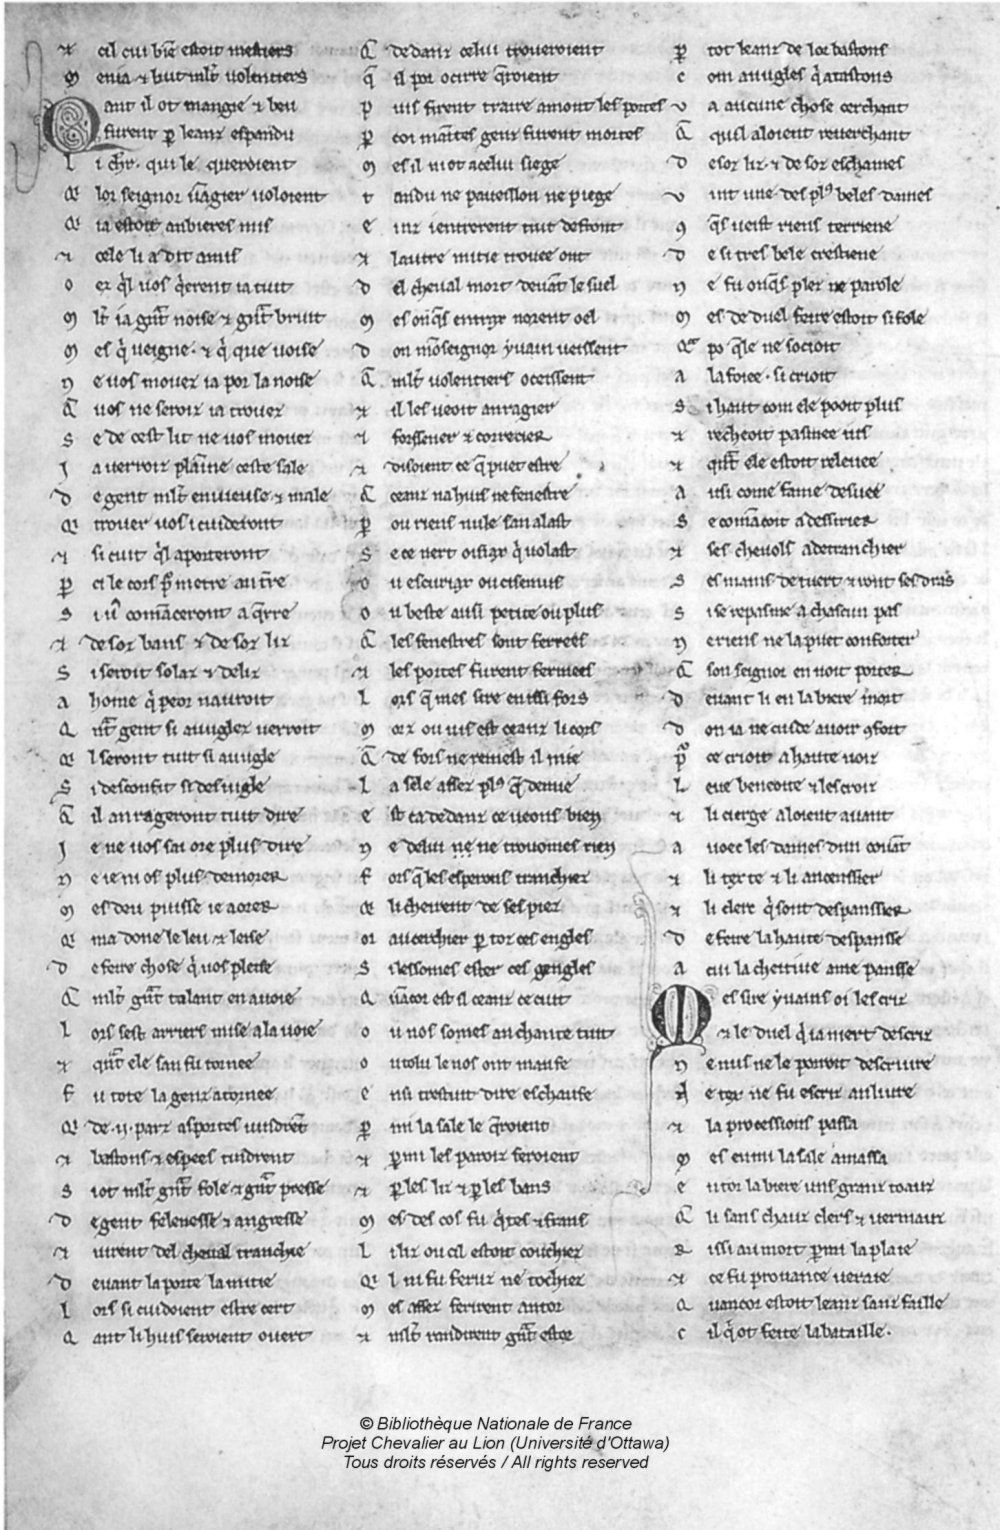 ⁊ cil cui biē estoit mestiers
M enia ⁊ but ml't uolentiers
Q ant il ot mangie ⁊ beu
furent ꝑ leanz espandu
L i chr̄. qui le queroient
Q' lor seignor uāgier uoloient
Q' ia estoit anbieres mis
⁊ cele li a dit amis
O ez q̄l uos q̄erent ia tuit
M l't ia gn̄t noise ⁊ gn̄t bruit
M es q̄ ueigne. ⁊ q̄ que uoise
N e uos mouez ia por la noise
Q̄ uos ne seroiz ia trouez
S e de cest lit ne uos mouez
J a uerroiz plainne ceste sale
D e gent ml't enuieuse ⁊ male
Q' trouer uos i cuideront
⁊ si cuit q̄l aporteront
ꝑ ci le cors p̄ metre an t're
S i uos comāceront a q̄rre
⁊ desoz bans ⁊ desoz liz
S i seroit solaz ⁊ deliz
A home q̄ peor nauroit
Q nt̄ gent si auugler uerroit
Q' l seront tuit si auugle
S i desconfit si desiugle
Q̄ il anrageront tuit dire
J e ne uos sai ore plus dire
N e ie ni os plus demorer
M es deu puisse ie aorer
Q' ma done le leu ⁊ leise
D e feire chose q̄ uos pleise
Q̄ ml't gn̄t talant en auoie
L ors sest arriers mise a la uoie
⁊ qn̄t ele san fu tornee
F u tote la genz atornee
Q' de .ij. parz as portes uindrēt
⁊ bastons ⁊ espees tindrent
S i ot ml't gn̄t fole ⁊ gn̄t presse
D e gent felenesse ⁊ angresse
⁊ uirent del cheual tranchie
D euant la porte la mitie
L ors si cuidoient estre cert
Q ant li huis seroient ouert
Q̄ dedanz celui troueroient
Q̄ il por ocirre q̄roient
P uis firent traire amont les portes
ꝑ coi maītes genz furent mortes
M es il ni ot a celui siege
T andu ne paueillon ne piege
E inz i entrerent tuit de front
⁊ lautre mitie trouee ont
D el cheual mort deuāt le suel
M es onq̄s entrax norent oel
D on mōseignor yuain ueissent
Q̄ ml't uolentiers oceissent
⁊ il les ueoit anragier
⁊ forssener ⁊ correcier
⁊ disoient ce q̄ puet estre
Q̄ ceanz na huis ne fenestre
ꝑ ou riens nule san alast
S e ce nert oisiax q̄ uolast
O u escuriax ou cisemus
O u beste ausi petite ou plus
Q̄ les fenestres sont ferrees
⁊ les portes furent fermees
L ors q̄ mes sire en issi fors
M orz ou uis est ceanz li cors
Q̄ defors ne remest il mie
L a sele assez pl's q̄ demie
E st ca dedanz ce ueons bien
N e de lui ne ne trouomes rien
F ors q̄ les esperons tranchiez
Q' li cheirent de ses piez
Or au cerchier ꝑ toz ces engles
S i lessomes ester ces gengles
Q uācor est il ceanz ce cuit
O u nos somes anchante tuit
O u tolu le nos ont maufe
E nsi trestuit dire eschaufe
ꝑ mi la sale le q̄roient
⁊ ꝑmi les paroiz feroient
⁊ ꝑ les liz ⁊ ꝑ les bans
M es des cos fu q̄tes ⁊ frans
L i liz ou cil estoit couchiez
Q' l ni fu feruz ne tochiez
M es assez ferirent antor
⁊ ml't randirent gn̄t estor
ꝑ tot leanz de lor bastons
C om auugles q̄ a tastons
V a aucune chose cerchant
Q̄ quil aloient reuerchant
D esoz liz. ⁊ desoz eschames
V int une des pl's beles dames
9 q̄s ueist riens terriene
D e si tres bele crestiene
N e fu onq̄s plez ne parole
M es de duel feire estoit si fole
Q' a po q̄le ne socioit
A la foiee. si crioit
S i haut com ele pooit plus
⁊ recheoit pasmee ius
⁊ qn̄t ele estoit releuee
A usi come fame desuee
S e comācoit a dessirier
⁊ ses cheuols a detranchier
S es mains detuert ⁊ ront ses dras
S i se repasme a chascun pas
N e riens ne la puet conforter
Q̄ son seignor en uoit porter
D euant li en la biere mort
D on ia ne cuide auoir 9fort
P' ce crioit a haute uoiz
L eue beneoite ⁊ les croiz
⁊ li cierge aloient auant
A uoec les dames dun couāt
⁊ li texte ⁊ li ancenssier
⁊ li clerc q̄ sont despanssier
D e feire la haute despansse
A cui la cheitiue ame pansse
M es sire yuains oi les criz
⁊ le duel q̄ ia niert descriz
N e nus ne le porroit descriure
N e tex ne fu escriz an liure
⁊ la processions passa
M es enmi la sale amassa
E ntor la biere uns granz toauz
Q̄ li sans chauz clers ⁊ uermauz
R issi au mort ꝑmi la plaie
⁊ ce fu prouance ueraie
Q uancor estoit leanz sanz faille
C il q̄ ot feite la bataille.
© Bibliothèque Nationale de France
Projet Chevalier au Lion (Université d'Ottawa)
Tous droits réservés / All rights reserved